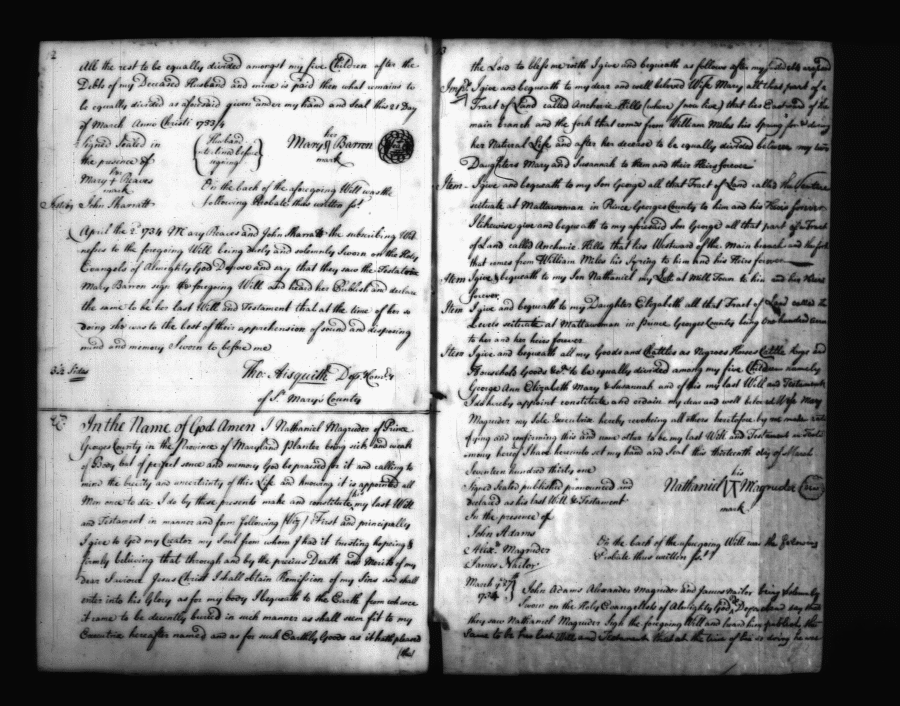 12
All the rest to be equally divided amongst my five Children after the
Debts of my Deceased Husband and mine is paid then what remains to
be equally divided as aforesaid given under my hand and Seal this 21 Day
of March Anno Christi 1733/4
Signed Sealed in
the presence of
her
Mary + Reaves
mark
John Sharratt
Husband
lived before
signing
her
Mary Barron
mark
On the back of the aforegoing Will was the
following Probate thus written
April the 2d 1734 Mary Reaves and John Sharratt the subscribing Wit
nesses to the foregoing Will being duely and solemnly Sworn on the Holy
Evangels of Almighty God Depose and say that they saw the Testatrix
Mary Barron sign the foregoing Will and heard her Publish and declare
the same to be her last Will and Testament that at the time of her so
doing she was to the best of their apprehension of sound and disposing
mind and memory Sworn to before me
Sides
Tho: Aisquith Depty Comry
of St Marys County
In the Name of God Amen I Nathaniel Magruder of Prince
Georges County in the Province of Maryland Planter being sick and weak
of Body but of perfect sence and memory God be praised for it and calling to
mind the brevity and uncertainty of this Life and knowing it is appointed all
Men once to die I do by these presents make and constitute this my last Will
and Testament in manner and form following (Viz) First and principally
I give to God my Creator my Soul from whom I had it trusting hoping &
firmly believing that through and by the precious Death and Merits of my
dear Saviour Jesus Christ I shall obtain Remission of my Sins and shall
enter into his Glory as for my body I bequeath to the Earth from whence
it came to be decently buried in such manner as shall seem fit to my
Executrix hereafter named and as for such Earthly Goods as it hath pleased
(the)
13
the Lord to bless me with I give and bequeath as follows after my
Imps I give and bequeath to my dear and well beloved Wife Mary all that part of a
Tract of Land called Anchovie Hills (where I now live) that lies Eastward of the
main branch and the fork that comes from William Miles his Spring for & during
her Natural Life and after her decease to be equally divided between my two
Daughters Mary and Susannah to them and their Heirs forever
Item I give and bequeath to my Son George all that Tract of Land called the Venture
scituate at Mattawoman in Prince Georges County to him and his Heirs forever
I likewise give and bequeath to my aforesaid Son George all that part of a Tract
of Land called Anchovie Hills that lies Westward of the Main branch and the fork
that comes from William Miles his Spring to him and his Heirs forever
Item I give & bequeath to my Son Nathaniel my Lott at Mill Town to him and his Heirs
forever
Item I give and bequeath to my Daughter Elizabeth all that Tract of Land called
Levels scituate at Mattawoman in Prince Georges County being One hundred Acres
to her and her heirs forever
Item I give and bequeath all my Goods and Chattles as Negroes Horses Cattle hogs and
Household Goods &c. to be equally divided among my five Children namely
George Ann Elizabeth Mary & Susannah and of this my last Will and Testament
I do hereby appoint constitute and ordain my dear and well beloved Wife Mary
Magruder my Sole Executrix hereby revoking all others heretofore by me made rati
fying and confirming this and none other to be my last Will and Testament in Testi
mony hereof I have hereunto set my hand and Seal this thirteenth day of March
Seventeen hundred thirty one
Signed Sealed published pronounced and
declared as his last Will & Testament
In the presence of
his
Nathaniel Magruder
mark
John Adams
Alexr. Magruder
James Nailor
On the back of the aforegoing Will was the following
Probate thus written
March ye 27
1734
John Adams Alexander Magruder and James Nailor being Solemnly
Sworn on the Holy Evangelists of Almighty God Depose and say that
they saw Nathaniel Magruder Sign the foregoing Will and heard him publish the
same to be his last Will and Testament that at the time of his so doing he was